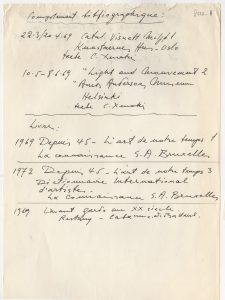 Complément bibliographique:
22.3/20.4.69 Catal. Visuelt Miljø 1
Kunstnernes Hus - Oslo
texte C. Xenakis
10.5-8.6.69 "Light and Mouvement 2
Amos Anderson Museum
Helsinki
texte C. Xenakis
Livres:
1969 Depuis 45 - L'art de notre temps 1
La connaissance S.A. Bruxelles
1972 Depuis 45 - L'art de notre temps 3
Dictionnaire International
d'artistes.
La Connaissance S.A. Bruxelles
1969 L'avant garde au XX siècle
Restany - Cabanne